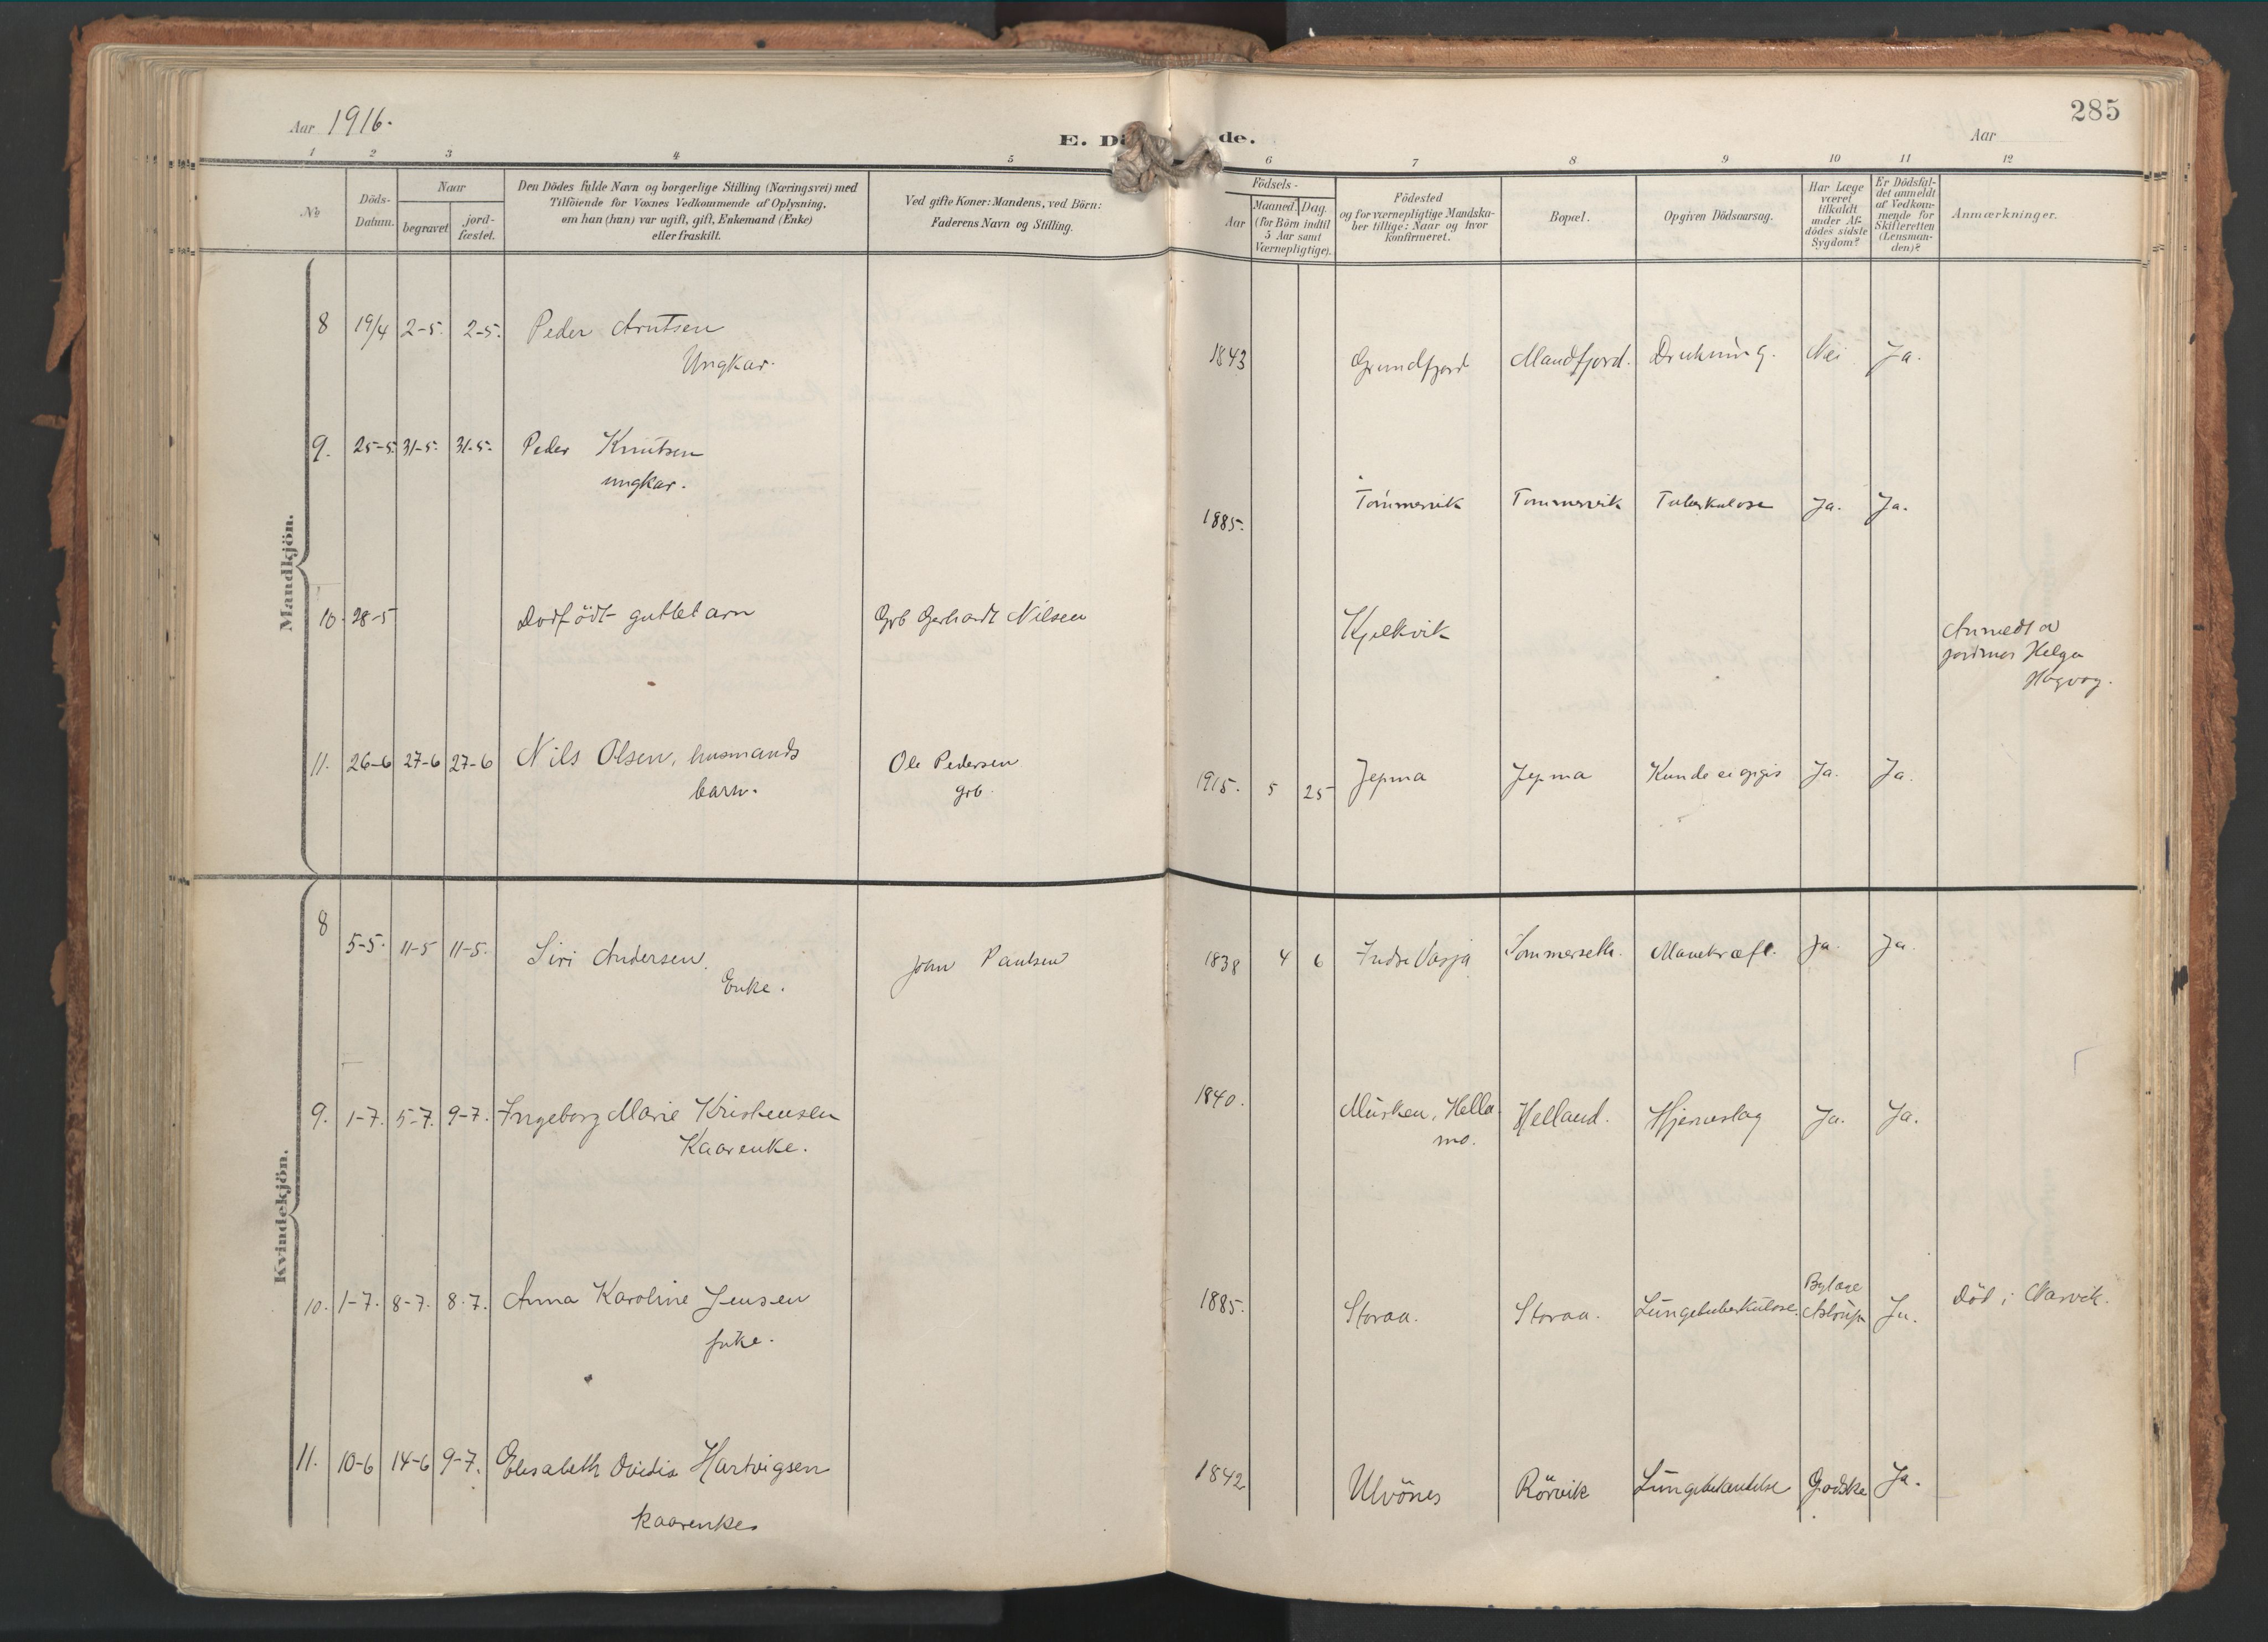 Aar 1916.
E. Dö de.
Aar
285
1 2 3 4 5 6 7 8 9 10 11 12
No
Döds-
Datum.
Naar
begravet
jord-
fæstet.
Den Dödes fulde Navn og borgerlige Stilling (Næringsvei) med
Tilföiende for Voxnes Vedkommende af Oplysning,
om han (hun) var ugift, gift, Enkemand (Enke)
eller fraskilt.
Ved gifte Koner: Mandens, ved Börn:
Faderens Navn og Stilling.
Födsels-
Aar
Maaned.
Dag.
(for Börn indtil
5 Aar samt
Værnepligtige).
Födested
og for værnepligtige Mandska-
ber tillige: Naar og hvor
konfirmeret.
Bopæl.
Opgiven Dödsaarsag.
Har Læge
været
tilkaldt
under Af-
dödes sidste
Sygdom?
Er Dödsfal-
det anmeldt
af Vedkom-
mende for
Skifteretten
(Lensman-
den)?
Anmærkninger.
Mandkjön.
8 19/4 2-5. 2-5. Peder Arntsen
Ungkar.
1843 Grundfjord Mandfjord. Drukning. Nei Ja.
9. 25-5. 31-5. 31-5. Peder Knutsen
ungkar.
1885. Tömmervik Tömmervik Tuberkulose Ja. Ja.
10. 28-5 Dödfödt guttebarn Grb Gerhardt Nilsen Kjelkvik
Anmeldt av
jordmor Helga
Hagvag.
11. 26-6 27-6 27-6 Nils Olsen, husmands
barn.
Ole Pedersen
grb.
1915. 5 25 Jepma Jepma Kunde ei Ja. Ja.
Kvindekjön.
8 5-5. 11-5 11-5. Siri Andersen
Enke.
John Paulsen 1838 4 6 Indre Sommerseth. Ja. Ja.
9. 1-7. 5-7. 9-7. Ingeborg Marie Kristensen
Kaarenke.
1840. Musken, Hella-
mo.
Helland. Hjerneslag Ja. Ja.
10. 1-7. 8-7. 8-7. Anna Karoline Jensen
pike.
1885. Storaa. Storaa. Lungetuberkulose.
Bylæge
Astrup
Ja. Död i Narvik.
11. 10-6 14-6 9-7. Elisabeth Ovidia Hartvigsen
kaarenke
1842 Ulvönes Rörvik Lungebetændelse Godske Ja.